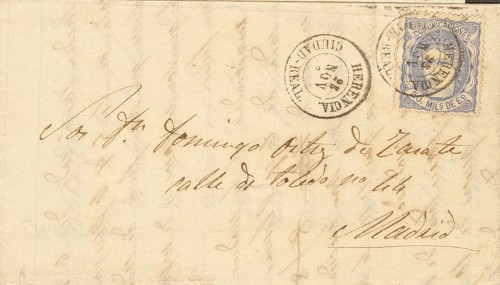 COMUNICACIONES
50 MILS DE EO
HERENCIA
CIUDAD-REAL
HERENCIA.
CIUDAD-REAL.
Sor Dn Domingo Ortiz de Zarate
calle de Toledo no 44
Madrid